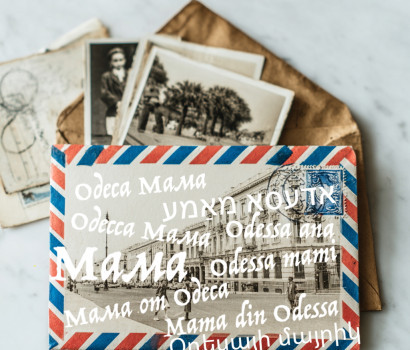 Одеса Мама
אדעסא מאמע
Одесса Мама
Odessa ana
Мама
Odessa mami
Мама от Одеса
Mama din Odessa
Օդեսայի մայրիկ